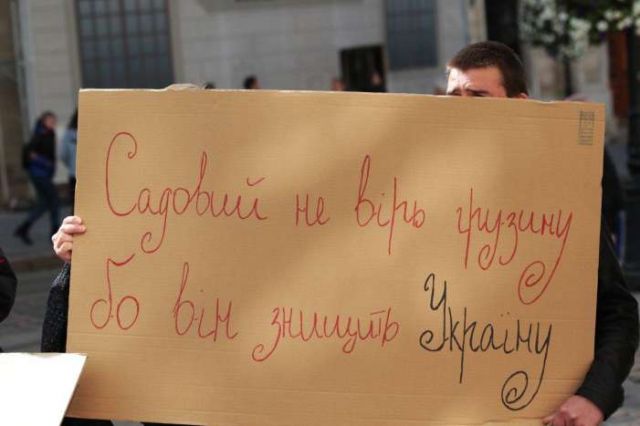 Садовий не вірь грузину
бо він знищить Україну